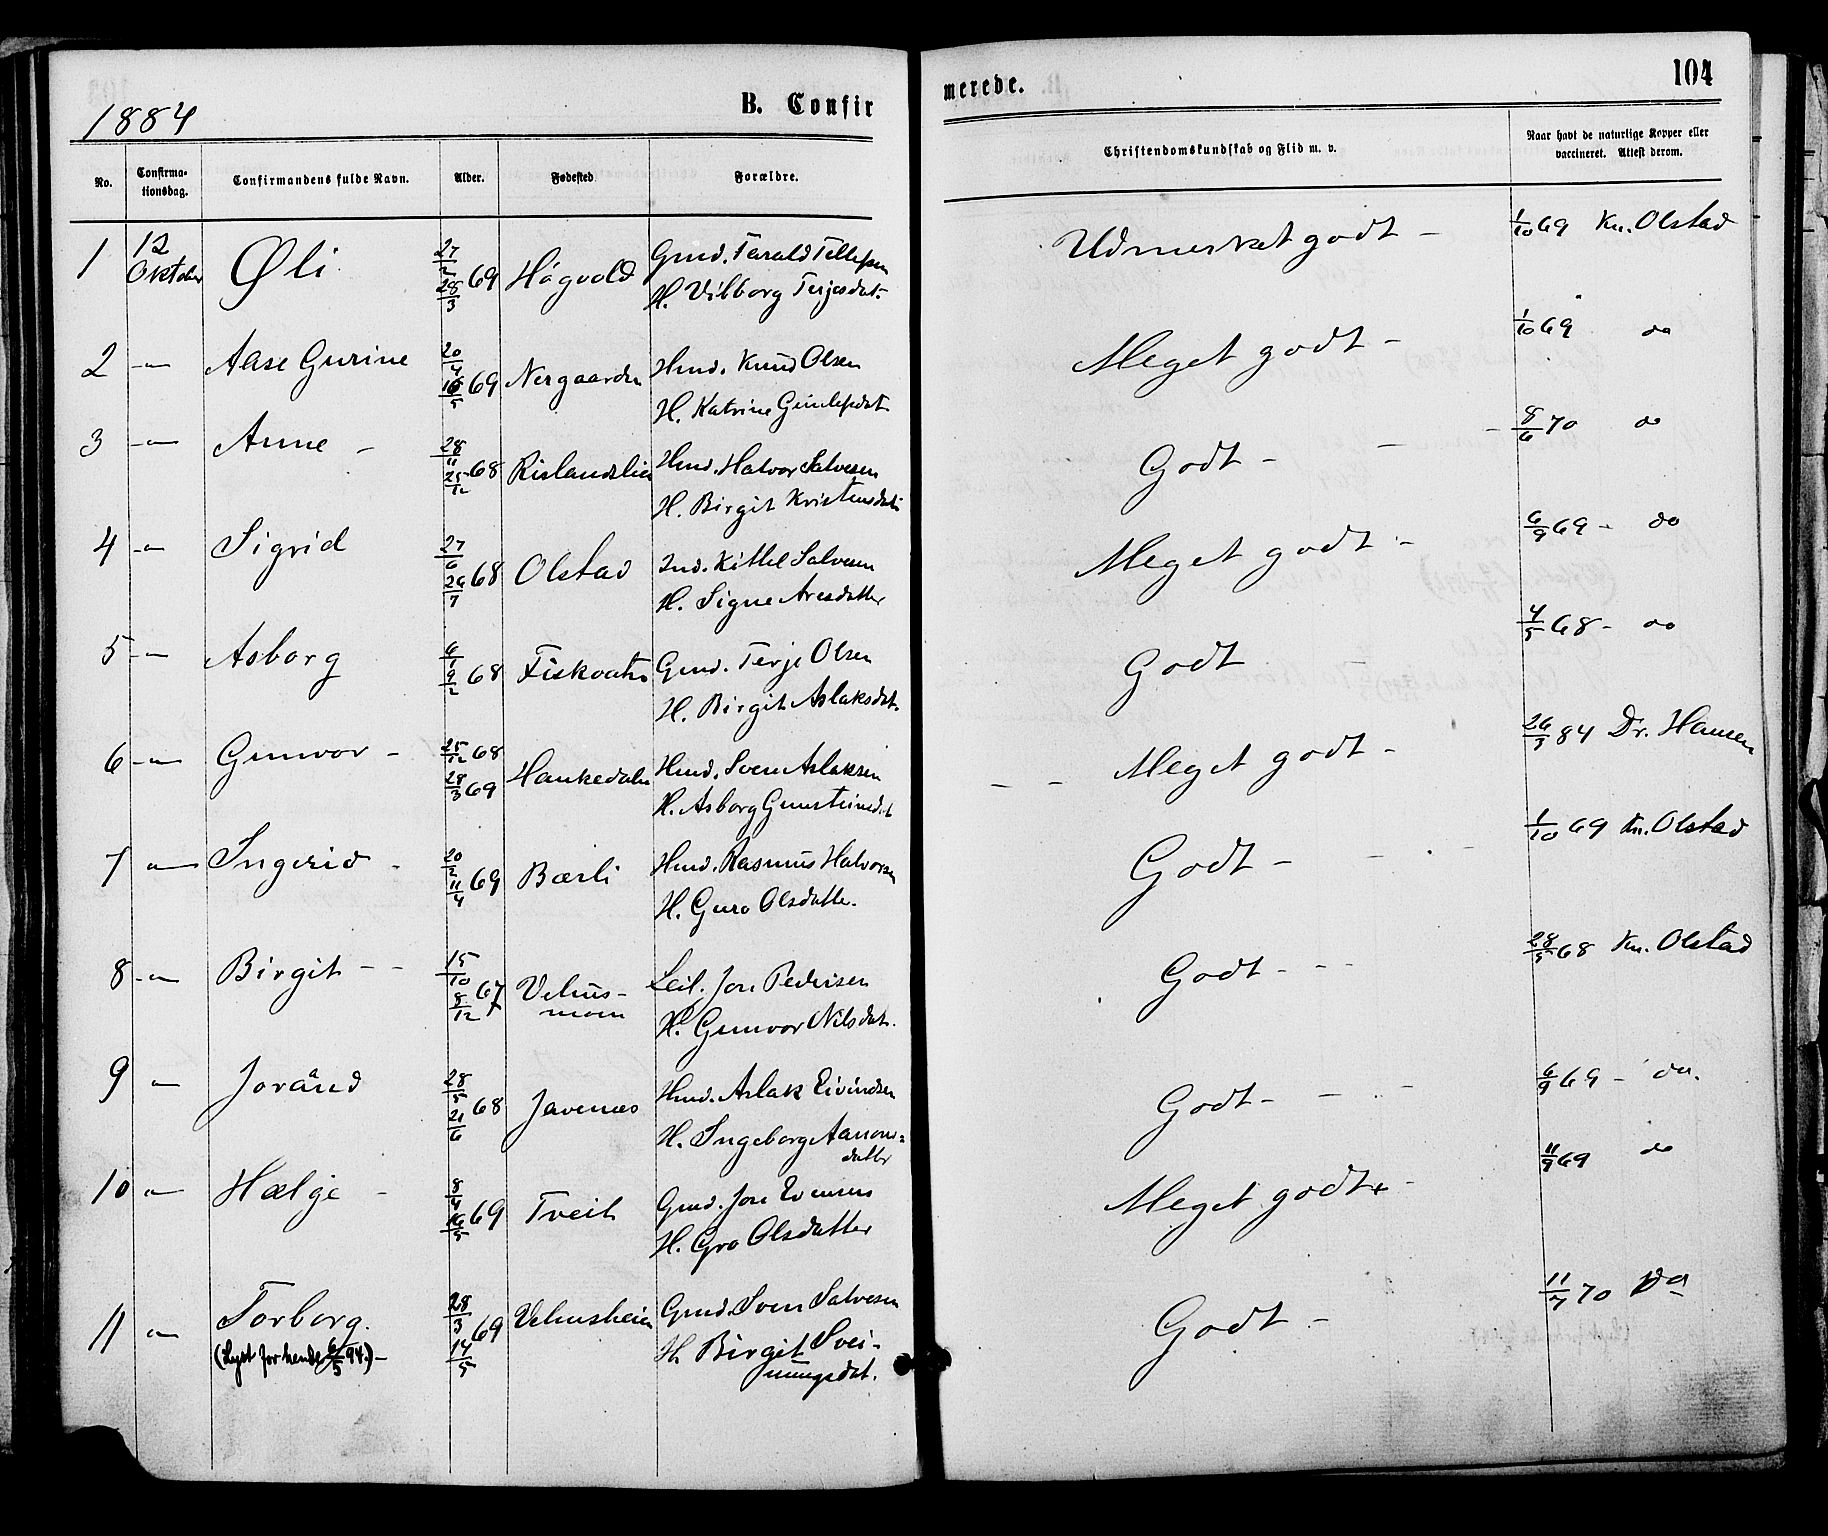 1884
B. Confirmerede.
104
No.
Confirmationsdag.
Confirmandens fulde Navn.
Alder.
Fødested.
Forældre.
Christendomskundskab og Flid m. v.
Naar havt de naturlige Kopper eller vaccineret. Attest derom.
1 12 Oktober Øli 27/2 28/3 69 Högvold Gmd. Tarald Tellefsen
H. Vilborg Terjesdat. Udmerket godt - 1/10 69 Kn. Olstad
2 -"- Aase Gurine 20/4 16/5 69 Nergaarden Hmd. Knud Olsen
H. Katrine Gunlefsdat. Meget godt - 1/10 69 do
3 -"- Anne - 28/11 25/12 68 Rislandslien Hmd. Halvor Salvesen
H. Birgit Kristensdat. Godt - 8/6 70 do
4 -"- Sigrid 27/6 26/7 68 Olstad Ind. Kittel Salvesen
H. Signe Aresdatter Meget godt - 6/9 69 - do
5 -"- Asborg 6/1 9/2 68 Fiskvatn Gmd. Terje Olsen
H. Birgit Aslaksdat. Godt 4/5 68 - do
6 -"- Gunvor - 25/12 68 28/3 69 Haukedalen Hmd. Sven Aslaksen
H. Asborg Gunsteinsdat Meget godt - 26/9 84 Dr. Hansen
7 -"- Ingerid - 20/2 11/4 69 Bærli Hmd. Rasmus Halvorsen
H. Guro Olsdatte. Godt - 1/10 69 Kn. Olstad
8 -"- Birgit - - 15/10 8/12 67 Vehus-
moen Leil. Jon Pedersen
H. Gunvor Nilsdat. Godt - - - 28/5 68 Kn. Olstad
9 -"- Joránd 28/5 21/6 68 Javenæs Hmd. Aslak Eivindsen
H. Ingeborg Aanons-
datter Godt - - 6/9 69 - do.
10 -"- Hælge - 8/4 16/5 69 Tveit Gmd. Jon Evensen
H. Gro Olsdatter Meget godt + - 11/9 69 do
11 -"- Torborg. 28/3 14/5 69 Vehusheien Gmd. Sven Salvesen
(Lyst for hende 6/5 94.) - H. Birgit Svei-
nungsdat. Godt - 11/7 70 do